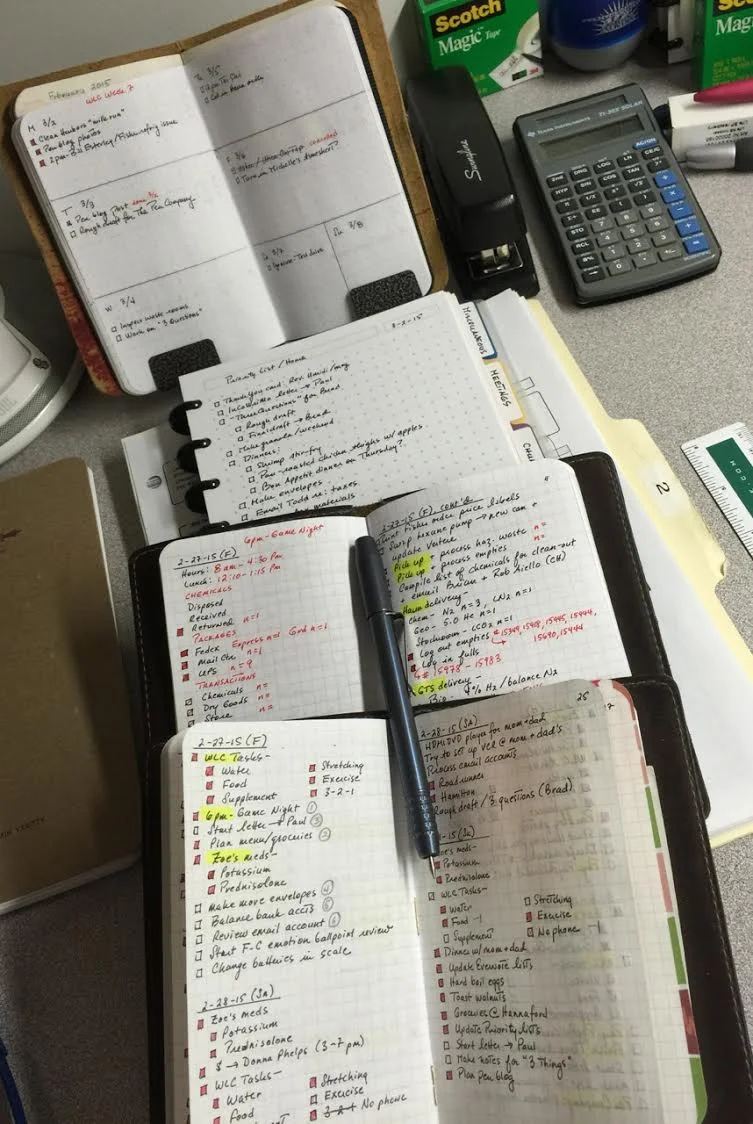 Scotch
Magic Tape
Scotch
Magic
3M
TEXAS INSTRUMENTS TI-36X SOLAR
Swingline
February 2015
WLC Week 7
M 3/2
Pen blog photos
T 3/3
Pen blog post done 3/2
Rough draft for The Pen Company
W 3/4
Inspect waste rooms
Work on "3 Questions"
Th 3/5
F 3/6
Turn in Michelle's timesheet?
Sa 3/7
Su 3/8
MISCELLANEOUS
MEETINGS
2
3-2-15
Priority List / Home
Thank you card: Rev.
letter → Paul
"Three Questions" for Brad
Rough draft
Final draft → Brad
Make granola/weekend
Dinners:
Shrimp stir-fry
Pan-roasted chicken thighs w/ apples
Bon Appetit dinner on Thursday?
Make envelopes
Email Todd re: taxes
materials
6pm-Game Night
2-27-15 (F)
Hours: 8am - 4:30 pm
Lunch: 12:10 - 1:15 pm
CHEMICALS
Disposed
Received
Returned n=1
PACKAGES
FedEx Express n=1 Grd n=1
Mail Ctr. n=1
UPS n=9
TRANSACTIONS
Chemicals n=
Dry Goods n=
Store n=
2-27-15 (F) cont'd
Print Fisher order price labels
Swap hexane pump → new can +
update Vertere
Pick up + process haz. waste n=
Pick up + process empties n=
Compile list of chemicals for clean-out
+ email Brian + Rob Aiello (CH)
Haun delivery-
Chem- N2 n=3, LN2 n=1
Geo - 5.0 He n=1
Stockroom - LCO2 n=1
Log out empties → 15349, 15908, 15945, 15944,
15690, 15444
Log in fulls
L# 15978 - 15983
GTS delivery-
Bio- 4% H2/balance N2
2-27-15 (F)
WLC Tasks-
Water
Food
Supplement
Stretching
Exercise
3-2-1
6pm-Game Night 1
Start letter → Paul 3
Plan menu/groceries 2
Zoe's meds-
Potassium
Prednisolone
Make more envelopes 4
Balance bank accts 5
Review email account 6
Start F-C emotion ballpoint review
Change batteries in scale
2-28-15 (Sa)
Zoe's meds
Potassium
Prednisolone
$ → Donna Phelps (3-7 pm)
WLC Tasks-
Water
Food
Stretching
Exercise
3-2-1 No phone
25
2-28-15 (Sa)
HDMI DVD player for mom+dad
Try to set up VCR @ mom + dad's
Process email accounts
Roadrunner
Hamilton
Rough draft / 3 questions (Brad)
Zoe's meds-
Potassium
Prednisolone
WLC Tasks-
Water
Food -1
Supplement
Stretching
Exercise
No phone -1
Dinner w/ mom + dad
Update Evernote lists
Hard boil eggs
Toast walnuts
Groceries @ Hannaford
Update Priority lists
Start letter → Paul
Make notes for "3 Things"
Plan pen blog